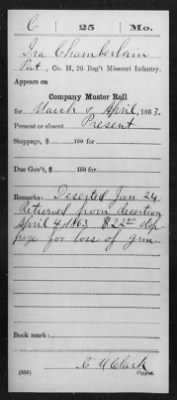 C 25 Mo.
Ira Chamberlain
Pvt., Co. H, 25 Reg't Missouri Infantry.
Appears on
Company Muster Roll
for March & April, 1863.
Present or absent Present
Stoppage, $ 100 for
Due Gov't, $ 100 for
Remarks: Deserted Jan 24
Returned from desertion
April 4, 1863 $22 stop
page for loss of gun
Book mark:
Copyist.